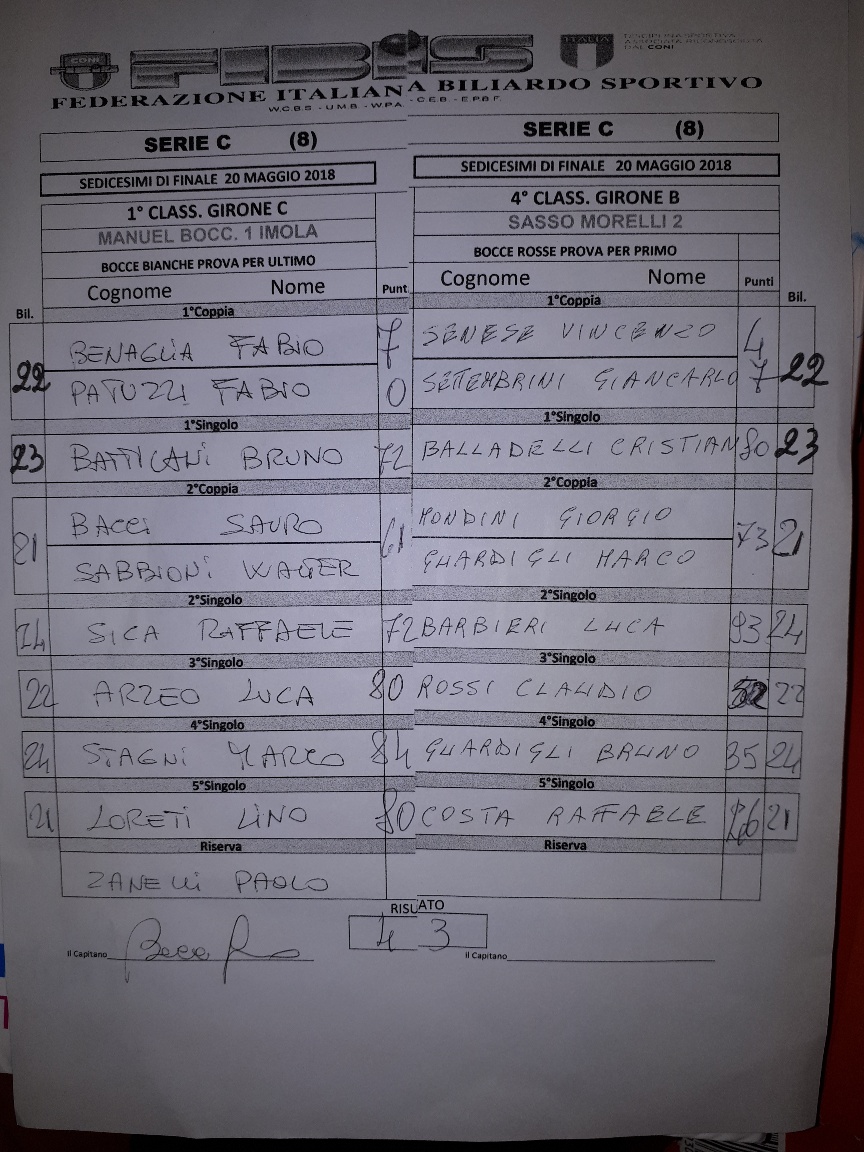 CONI FIBIS ITALIA DISCIPLINA SPORTIVA ASSOCIATA RICONOSCIUTA DAL CONI
FEDERAZIONE ITALIANA BILIARDO SPORTIVO
W.C.B.S - U.M.B - W.P.A. - C.E.B - E.P.B.F.
SERIE C (8) SERIE C (8)
SEDICESIMI DI FINALE 20 MAGGIO 2018 SEDICESIMI DI FINALE 20 MAGGIO 2018
1° CLASS. GIRONE C 4° CLASS. GIRONE B
MANUEL BOCC. 1 IMOLA SASSO MORELLI 2
BOCCE BIANCHE PROVA PER ULTIMO BOCCE ROSSE PROVA PER PRIMO
Bil. Cognome Nome Punt Cognome Nome Punti Bil.
1°Coppia 1°Coppia
22 BENAGLIA FABIO 7 SENESE VINCENZO 4 22
PATUZZI FABIO 0 SETTEMBRINI GIANCARLO 7
1°Singolo 1°Singolo
23 BATTICANI BRUNO 72 BALLADELLI CRISTIAN 80 23
2°Coppia 2°Coppia
21 BACCI SAURO 61 MONDINI GIORGIO 73 21
SABBIONI WALTER GUARDIGLI MARCO
2°Singolo 2°Singolo
24 SICA RAFFAELE 72 BARBIERI LUCA 93 24
3°Singolo 3°Singolo
22 ARZEO LUCA 80 ROSSI CLAUDIO 22
4°Singolo 4°Singolo
24 STAGNI MARCO 84 GUARDIGLI BRUNO 35 24
5°Singolo 5°Singolo
21 LORETI LINO 80 COSTA RAFFAELE 21
Riserva Riserva
ZANELLI PAOLO
RISULATO
4 3
Il Capitano Il Capitano